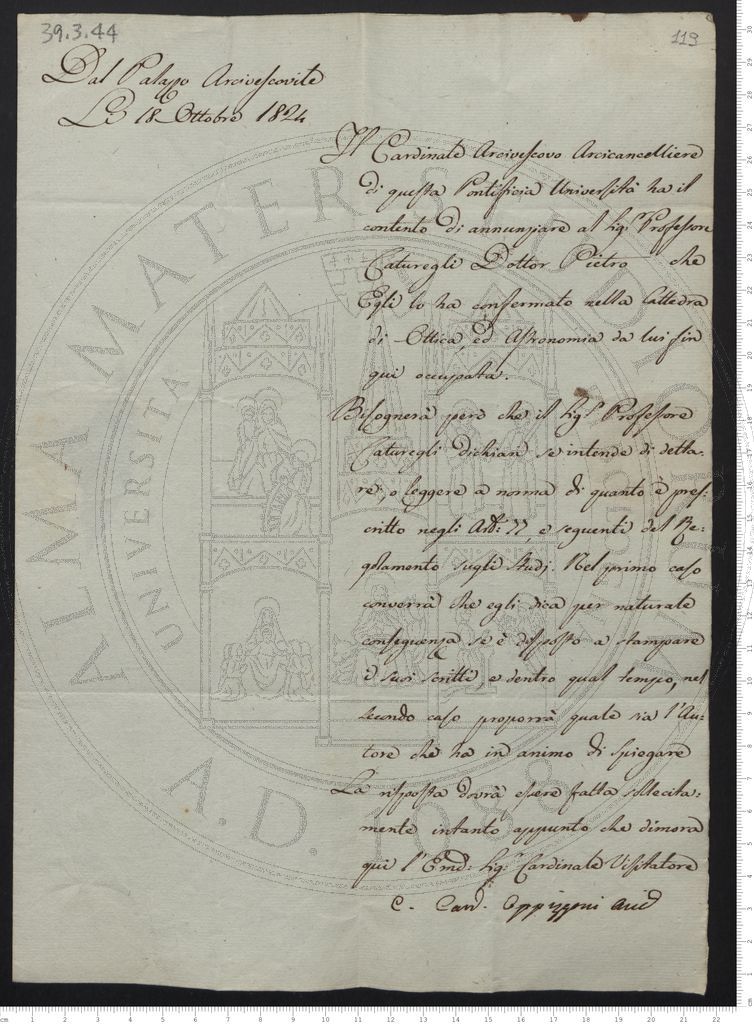 39.3.44
119
Dal Palazzo Arcivescovile
Li 18 Ottobre 1824
Il Cardinale Arcivescovo Arcicancelliere
di questa Pontificia Università ha il
contento di annunziare al Sigr Professore
Caturegli Dottor Pietro che
Egli lo ha confermato nella Cattedra
di Ottica, ed Astronomia da lui fin
qui occupata.
Bisognerà però che il Sigr Professore
Caturegli dichiari se intende di detta-
re, o leggere a norma di quanto è pres-
critto negli Art: 77, e seguenti del Re-
golamento sugli Studj. Nel primo caso
converrà che egli dica per naturale
conseguenza se è disposto a stampare
i suoi scritti, e dentro qual tempo, nel
secondo caso proporrà quale sia l'Au-
tore che ha in animo di spiegare
La risposta dovrà essere fatta sollecita-
mente intanto appunto che dimora
qui l'Emo: Sigr Cardinale Visitatore
C. Card. Oppizzoni Arciv
ALMA MATER STUDIORUM
UNIVERSITA
A.D. 1088